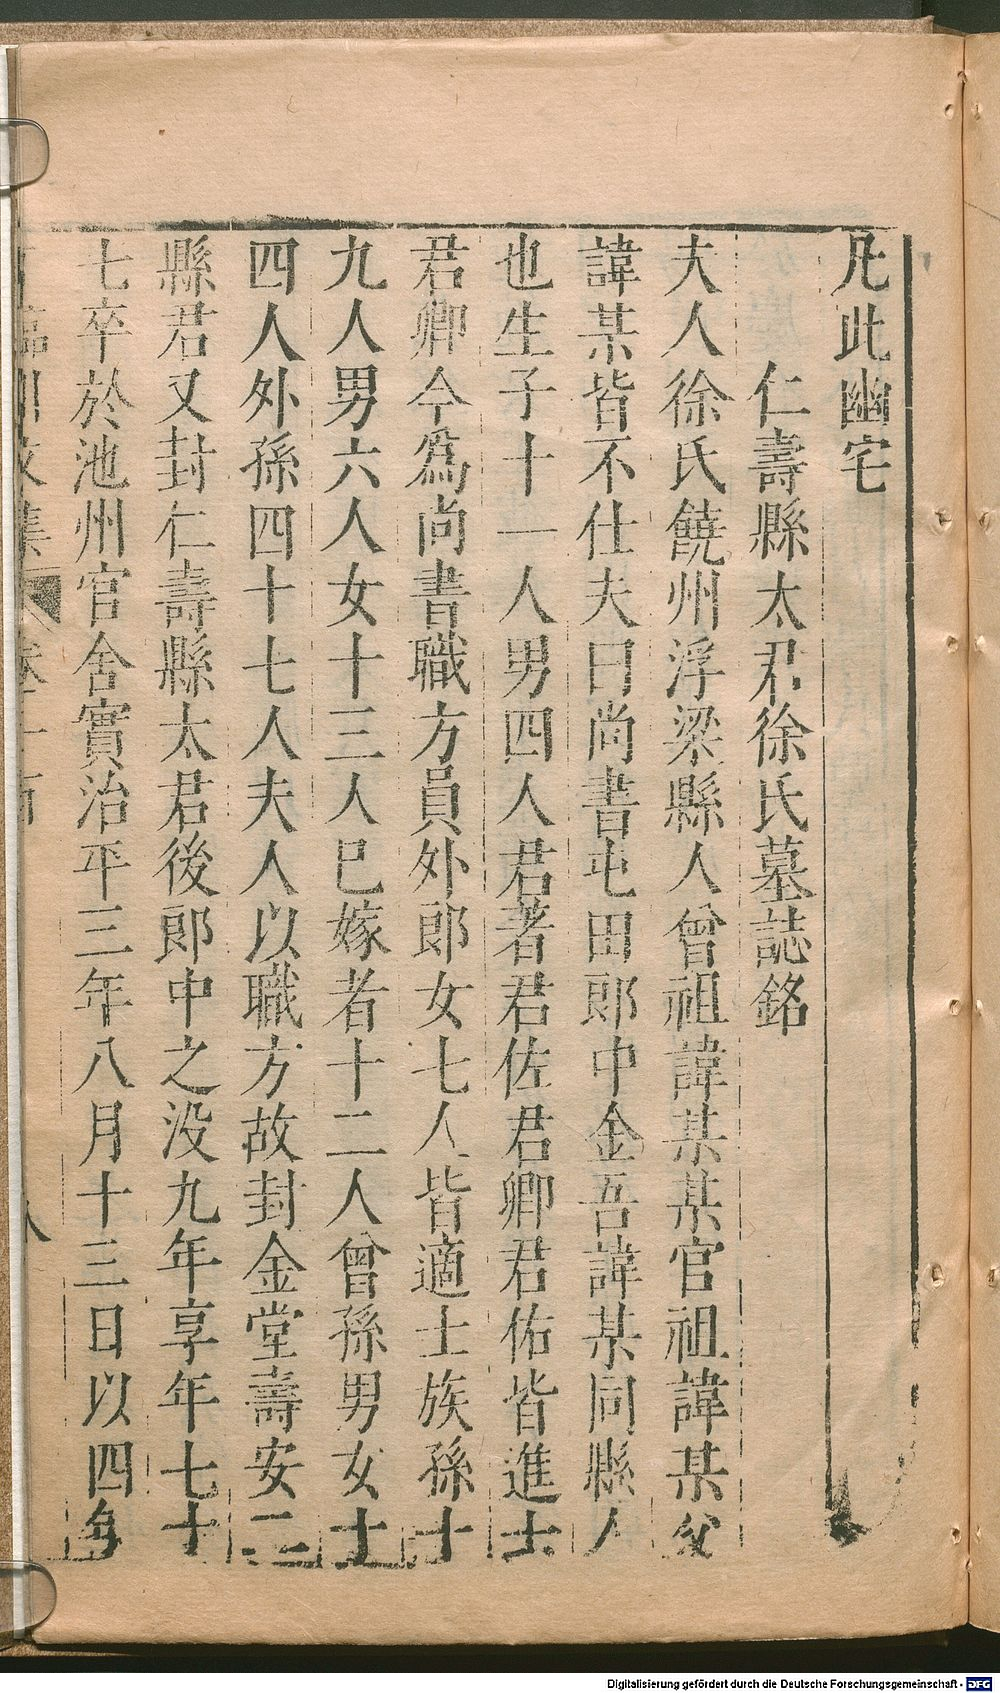 凡此幽宅
仁壽縣太君徐氏墓誌銘
夫人徐氏饒州浮梁縣人曾祖諱某某官祖諱某父
諱某皆不仕夫曰尚書屯田郎中金吾諱某同縣人
也生子十一人男四人君著君佐君卿君佑皆進士
君卿今爲尚書職方員外郎女七人皆適士族孫十
九人男六人女十三人巳嫁者十二人曾孫男女十
四人外孫四十七人夫人以職方故封金堂壽安二
縣君又封仁壽縣太君後郎中之没九年享年七十
七卒於池州官舍實治平三年八月十三日以四年
臨川文集 卷一百 八
Digitalisierung gefördert durch die Deutsche Forschungsgemeinschaft - DFG